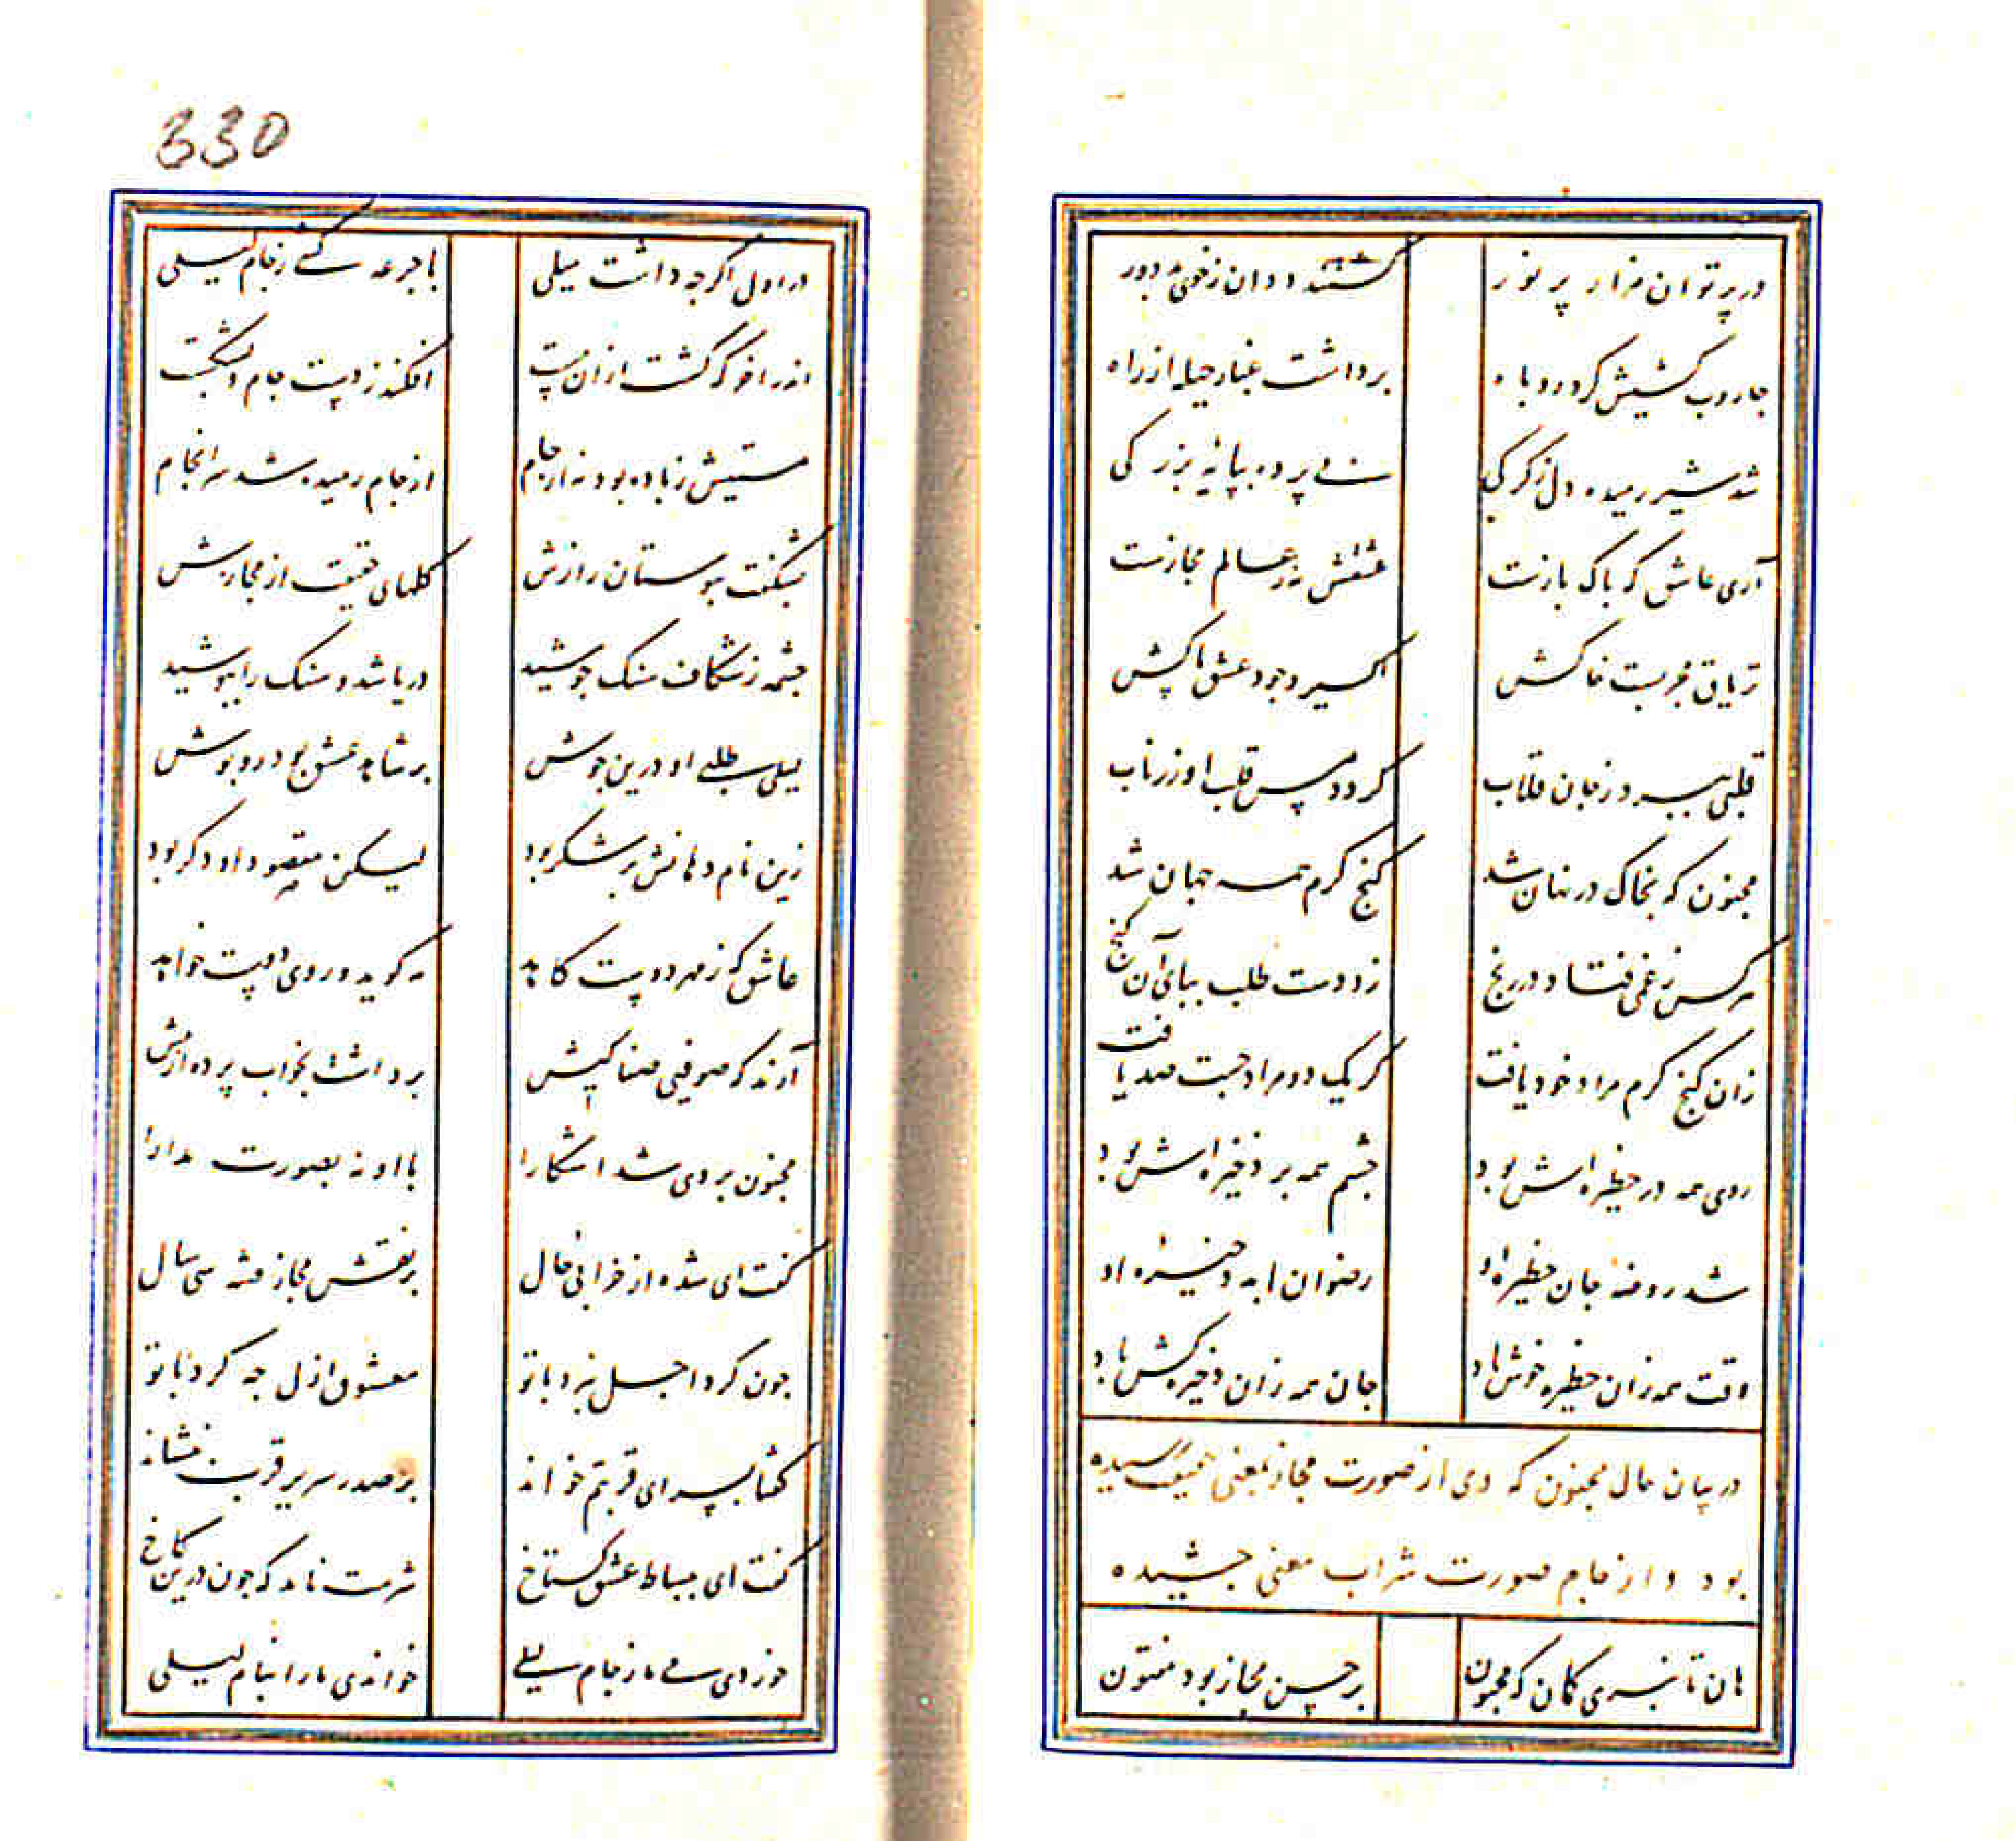 در پرتو آن مزار پر نور
گشتند ددان ز خوی بد دور
جاروب کشیش کرد روباه
برداشت غبار حیله از راه
شد شیر رمیده دل ز گرگی
بی پرده بپایه بزرکی
آری عاشق که پاک بازست
عشقش نه ز عالم مجازست
تریاق مجربست خاکش
اکسیر وجود عشق پاکش
قلبی ببرد ز جان قلاب
کردد مس قلب او زر ناب
مجنون که بخاک در نهان شد
کنج کرم همه جهان شد
هر کس ز غمی فتاد در رنج
زد دست طلب بپای آن کنج
زان کنج کرم مراد خود یافت
کر یک دو مراد جست صد یافت
روی همه در حظیره اش بود
چشم همه بر ذخیره اش بود
شد روضه جان حظیره او
رضوان ابد ذخیره او
وقت همه زان حظیره خوش باد
جان همه زان ذخیره کش باد
در بیان حال مجنون که وی از صورت مجاز بمعنی حقیقت رسیده
بود و از جام صورت شراب معنی چشیده
هان تا نبری کمان که مجنون
بر حسن مجاز بود مفتون
330
در اول اکر چه داشت میلی
با جرعه کشی ز جام لیلی
اندر آخر که کشت ازان مست
افکند ز دست جام و بشکست
مستیش ز باده بود نه از جام
از جام رمیده شد سرانجام
بشکفت ببوستان رازش
کلهای حقیقت از مجازش
چشمه ز شکاف سنک جوشید
دریا شد و سنک را بپوشید
لیلی طلبی او درین جوش
بر شاهد عشق بود روپوش
زین نام دهانش پر شکر بود
لیکن مقصود او دکر بود
عاشق که ز مهر دوست کاهد
مه کوید و روی دوست خواهد
آرند که صوفی صفا کیش
برداشت بخواب پرده از پیش
مجنون بر وی شد آشکارا
با او نه بصورت مدارا
کفت ای شده از خرابی حال
بر نقش مجاز فتنه سی سال
چون کرد اجل نبرد با تو
معشوق ازل چه کرد با تو
کفتا بسرای قربتم خواند
بر صدر سریر قرب بنشاند
کفت ای ببساط عشق کستاخ
شرمت نامد که چون درین کاخ
خوردی می ما ز جام لیلی
خواندی ما را بنام لیلی